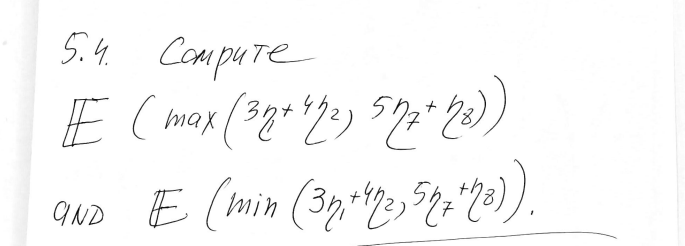 5.4. Compute
𝔼 (max(3η₁+4η₂, 5η₇+η₈))
AND 𝔼 (min (3η₁+4η₂, 5η₇+η₈)).